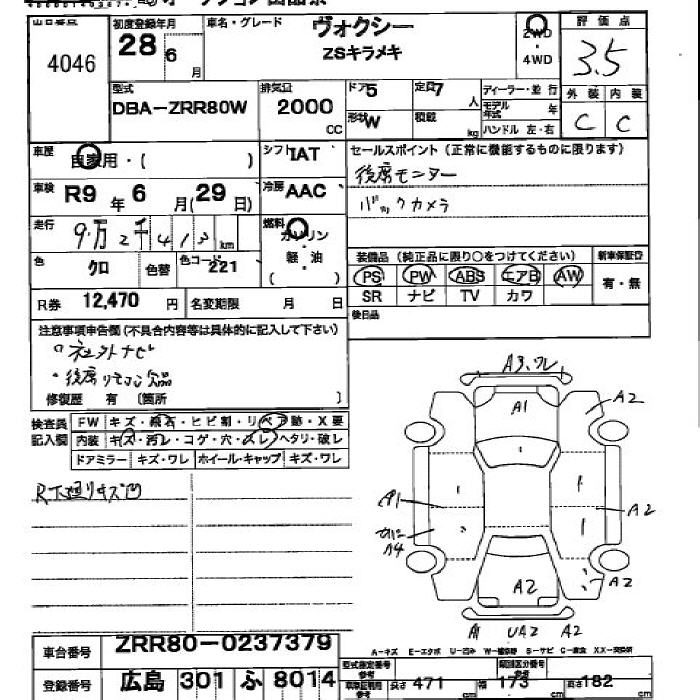 オークション出品票
4046
初度登録年月
28 6 月
車名・グレード
ヴォクシー
ZSキラメキ
2WD
・
4WD
評価点
3.5
型式
DBA-ZRR80W
排気量
2000 CC
ドア 5
定員 7 人
形状 W
積載 kg
ディーラー・並行
モデル年式 年
ハンドル 左・右
外装 内装
C C
車歴
自家用・( )
シフト IAT
冷房 AAC
セールスポイント(正常に機能するものに限ります)
後席モニター
バックカメラ
車検 R9 年 6 月(29日)
走行 9万2千413km
燃料
ガソリン
軽・油
( )
色 クロ 色替 色コード 221
装備品(純正品に限り○をつけてください) 新車保証書
PS PW ABS エアB AW
SR ナビ TV カワ
有・無
R券 12,470 円 名変期限 月 日
後日品
注意事項申告欄(不具合内容等は具体的に記入して下さい)
・社外ナビ
・後席リモコン欠品
修復歴 有 〔箇所 〕
検査員
記入欄
FW キズ・飛石・ヒビ割・リペア跡・X要
内装 キズ・汚レ・コゲ・穴・スレ・ヘタリ・破レ
ドアミラー キズ・ワレ ホイール・キャップ キズ・ワレ
R下廻りキズ凹
A3、ワレ
A1
A2
A1
A2
A4
A2
A2
A1 UA2 A2
A-キズ E-エクボ U-凹み W-補修跡 S-サビ C-腐食 XX-交換済
車台番号 ZRR80-0237379
登録番号 広島 301 ふ 8014
型式指定番号
参考
類別区分番号
参考
車庫証明用
参考
長さ 471 cm 幅 173 cm 高さ 182 cm